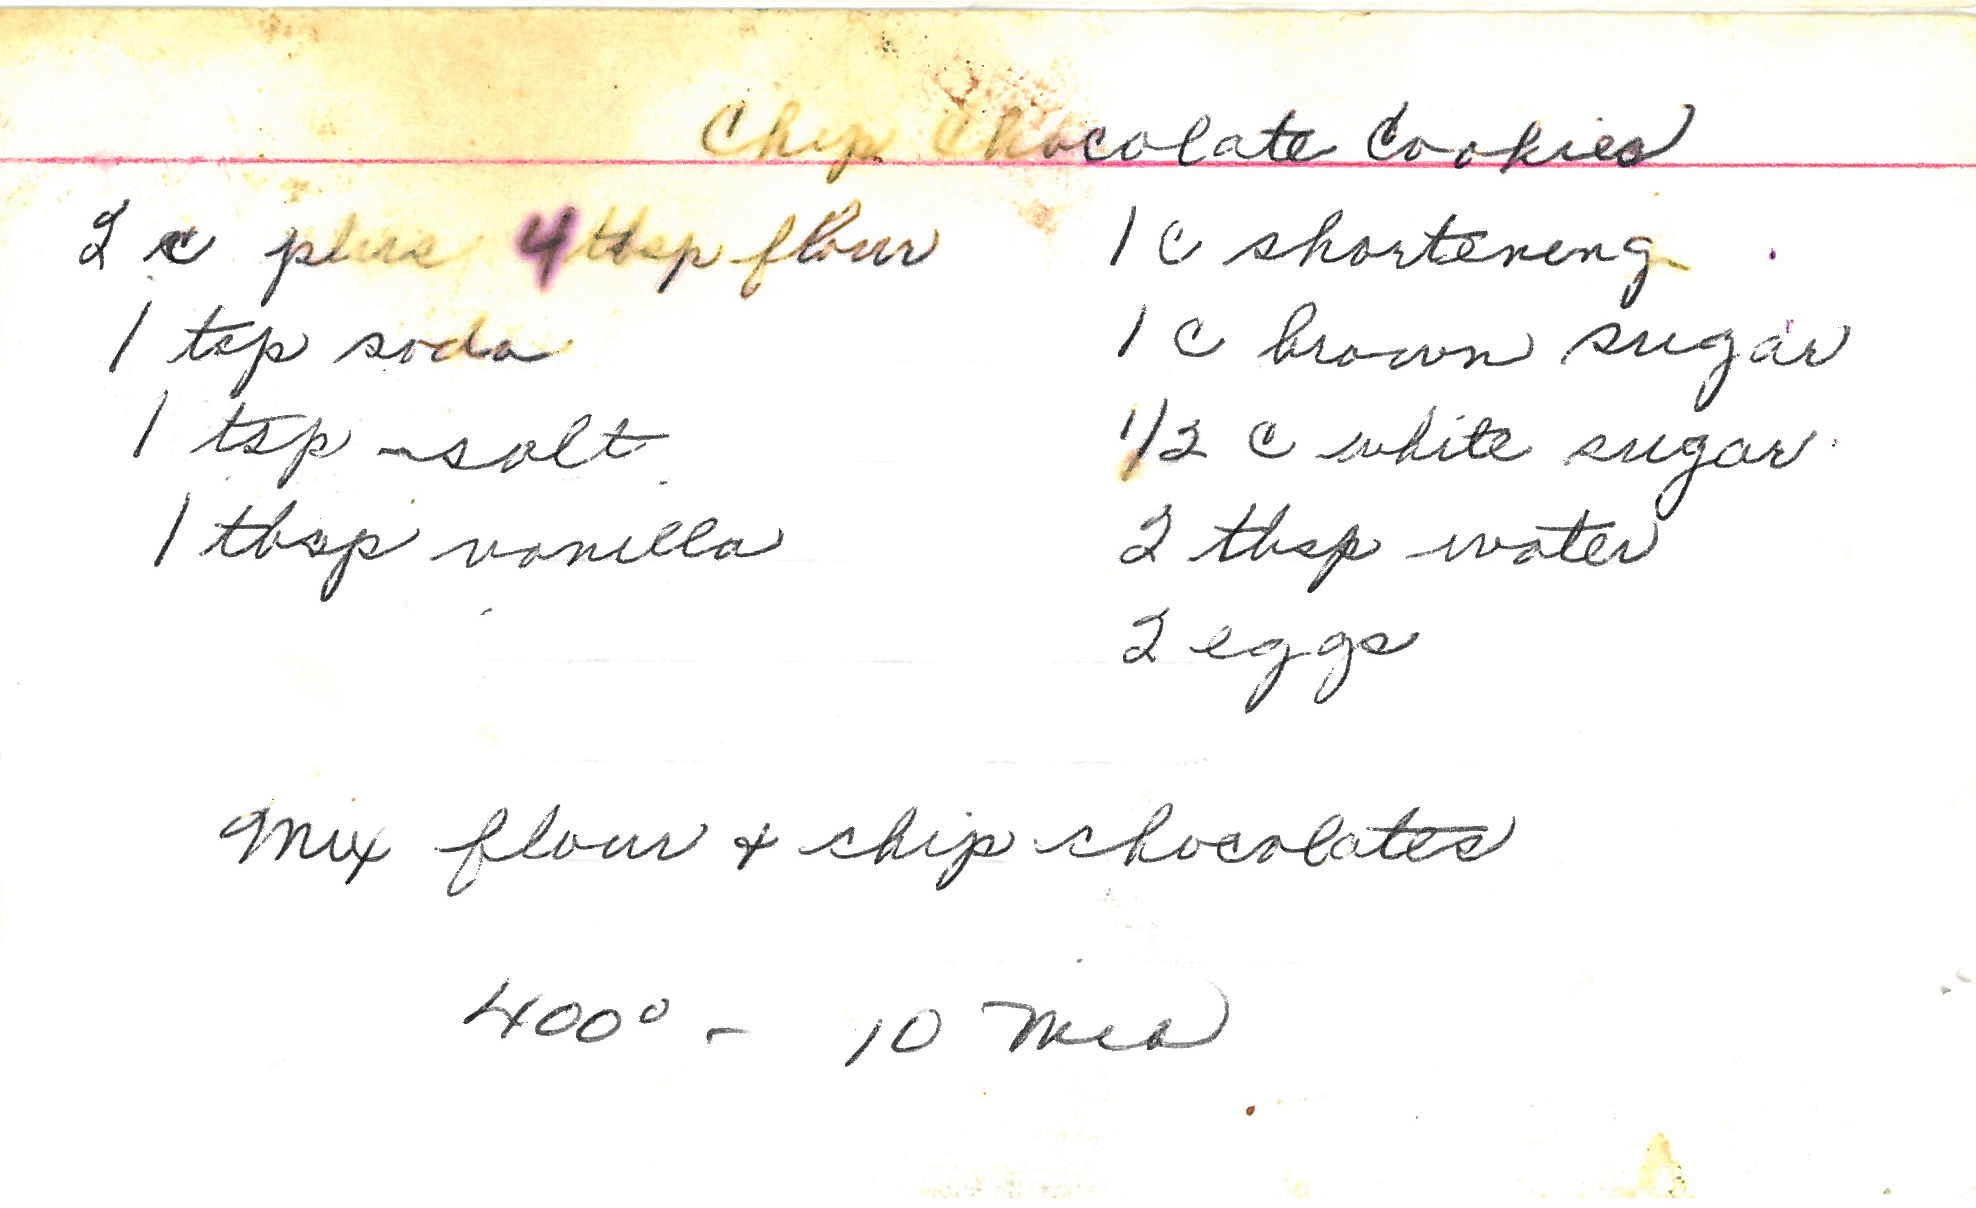 Chip Chocolate Cookies
2 c plus 4 tbsp flour
1 tsp soda
1 tsp salt
1 tbsp vanilla
1 c shortening
1 c brown sugar
1/2 c white sugar
2 tbsp water
2 eggs
Mix flour + chip chocolates
400° - 10 Min